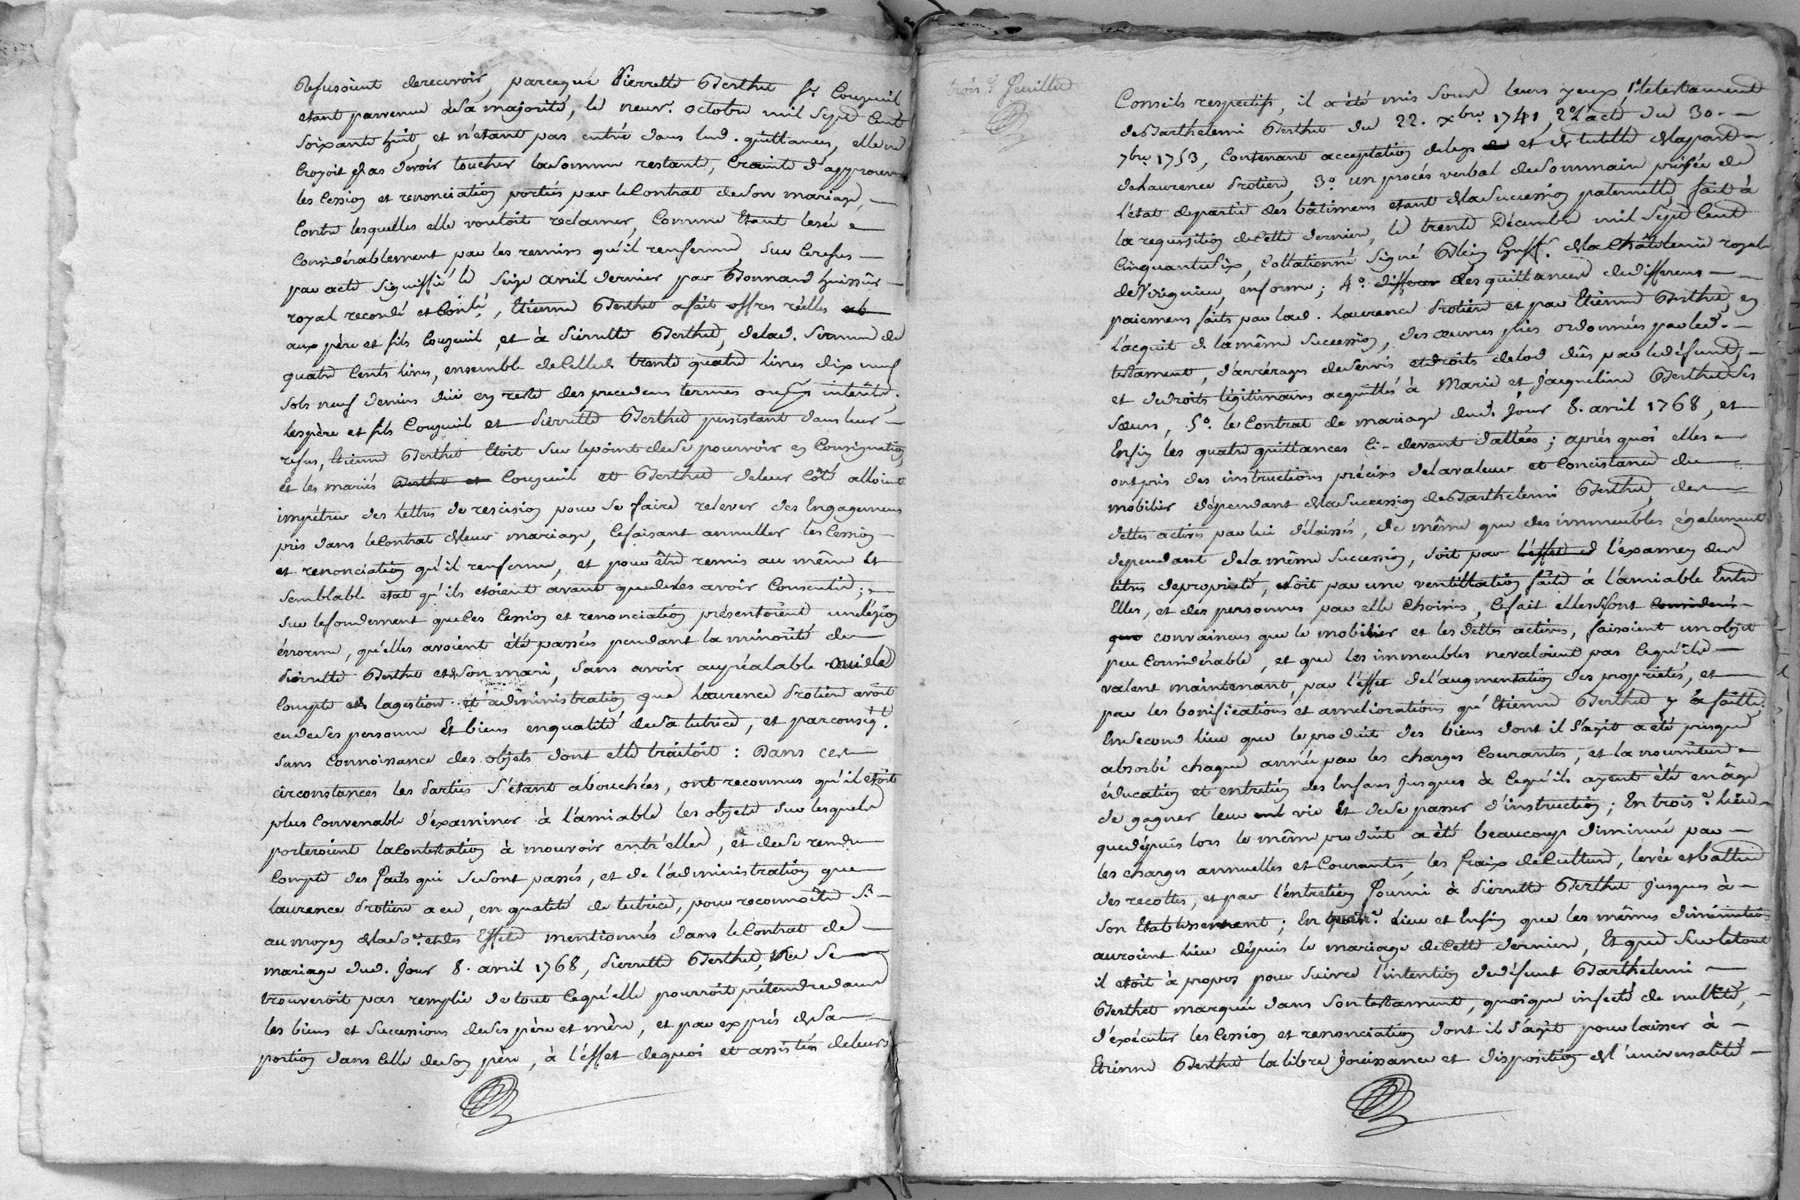 Refusoient de recevoir, parceque Pierrette Berthet fe. Couzeuil
etant parvenue à sa majorité, le neuv.e octobre mil sept cent
soixante huit, et n'etant pas entré dans lesd. quittances, elle ne
croyoit pas devoir toucher la somme restante, crainte d'approuver
les cession et renonciation portées par le contrat de son mariage,
contre lesquelles elle vouloit reclamer, comme etant lesée
considérablement par les remises qu'il renferme, sur ce refus
par acte signiffié le seize avril dernier par Bonnard huissier
royal recordé et conlé, Etienne Berthet a fait offres réelles
aux père et fils Couzeuil, et à Pierrette Berthet, de lad. somme de
quatre cents livres, ensemble de celle de trente quatre livres dix neuf
sols neuf deniers dûë en reste des precedens termes ou intérêts,
les père et fils Couzeuil et Pierrette Berthet persistant dans leur
refus, Etienne Berthet etoit sur le point de se pourvoir en consignation
et les mariés Berthet et Couzeuil et Berthet de leur côté alloient
impétrer des lettres de rescision pour se faire relever des engagemens
pris dans le contrat de leur mariage, ce faisant annuller les cession
et renonciation qu'il renferme, et pour être remis au même et
semblable etat qu'ils etoient avant que de les avoir consentie;
sur le fondement que les cession et renonciation présentoient une lésion
énorme, qu'elles avoient été passées pendant la minorité de
Pierrette Berthet et de son mari, sans avoir au préalable oui le
compte de la gestion et administration que Laurence Drotiere avoit
eu de ses personne et biens en qualité de sa tutrice, et par conséq.t
sans connoissance des objets dont elle traitoit : Dans ces
circonstances les parties s'étant abouchées, ont reconnus qu'il etoit
plus convenable d'examiner à l'amiable les objets sur lesquels
porteroient la contestation à mouvoir entr'elles, et de se rendre
compte des faits qui se sont passés, et de l'administration que
Laurence Drotiere a eu, en qualité de tutrice, pour reconnoître si
au moyen de la so.e et des effets mentionnés dans le contrat de
mariage dud. jour 8. avril 1768, Pierrette Berthet, ne se
trouveroit pas remplie de tout ce qu'elle pourroit prétendre dans
les biens et successions de ses père et mère, et par exprès de sa
portion dans celle de son père, à l'effet de quoi et assistées de leurs
trois.e feuillet
Conseils respectifs, il a été mis sous leurs yeux 1.° le testament
de Barthelemi Berthet du 22. xbre 1741, 2.° l'acte du 30.
7bre 1753, contenant acceptation de legs et de tutelle de la part
de Laurence Drotiere, 3.° un procès verbal de sommaire prisée de
l'état de partie des bâtimens etant de la succession paternelle fait à
la requisition de cette derniere, le trente Décembre mil sept cent
cinquante six, collationné signé Blein Greff. de la Châtelenie royale
de Virignieu, en forme; 4.° differen des quittances de differens
paiemens faits par lad. Laurence Drotiere et par Etienne Berthet, en
l'acquit de la même succession, des œuvres pies ordonnées par led.
testament, d'arrérages de servis et droits de lod dûs par le défunt,
et de droits légitimaires acquittés à Marie et Jacqueline Berthet ses
sœurs, 5.° le contrat de mariage dud. jour 8. avril 1768, et
Enfin les quatre quittances ci-devant dattées; après quoi elles
ont pris des instructions précises de la valeur et consistance du
mobilier dépendant de la succession de Barthelemi Berthet, des
dettes actives par lui délaissées, de même que des immeubles également
dependant de la même succession, soit par l'effet d l'éxamen des
titres de propriété, soit par une ventillation faite à l'amiable entre
Elles, et des personnes par elle choisies, ce fait elles sont
convaincus que le mobilier et les dettes actives, faisoient un objet
peu considérable, et que les immeubles ne valoient pas ce qu'ils
valent maintenant, par l'effet de l'augmentation des proprietés, et
par les bonifications et améliorations qu'Etienne Berthet y a faitte.
En second lieu que le produit des biens dont il s'agit a été presque
absorbé chaque année par les charges courantes, et la nourriture
éducation et entretien des enfans jusques à ce qu'ils ayent été en âge
de gagner leur vie et de se passer d'instruction; En trois.e lieu
que depuis lors le même produit a été beaucoup diminué par
les charges annuelles et courantes, les fraix de culture, levée et battue
des recoltes, et par l'entretien fourni à Pierrette Berthet jusques à
son Etablissement; En quatr.e lieu et enfin que les mêmes diminution
auroient lieu depuis le mariage de cette derniere, et que sur le tout
il etoit à propos pour suivre l'intention du défunt Barthelemi
Berthet marquée dans son testament, quoique infecté de nullité,
d'exécuter les cession et renonciation dont il s'agit pour laisser à
Etienne Berthet la libre jouissance et disposition de l'universalité